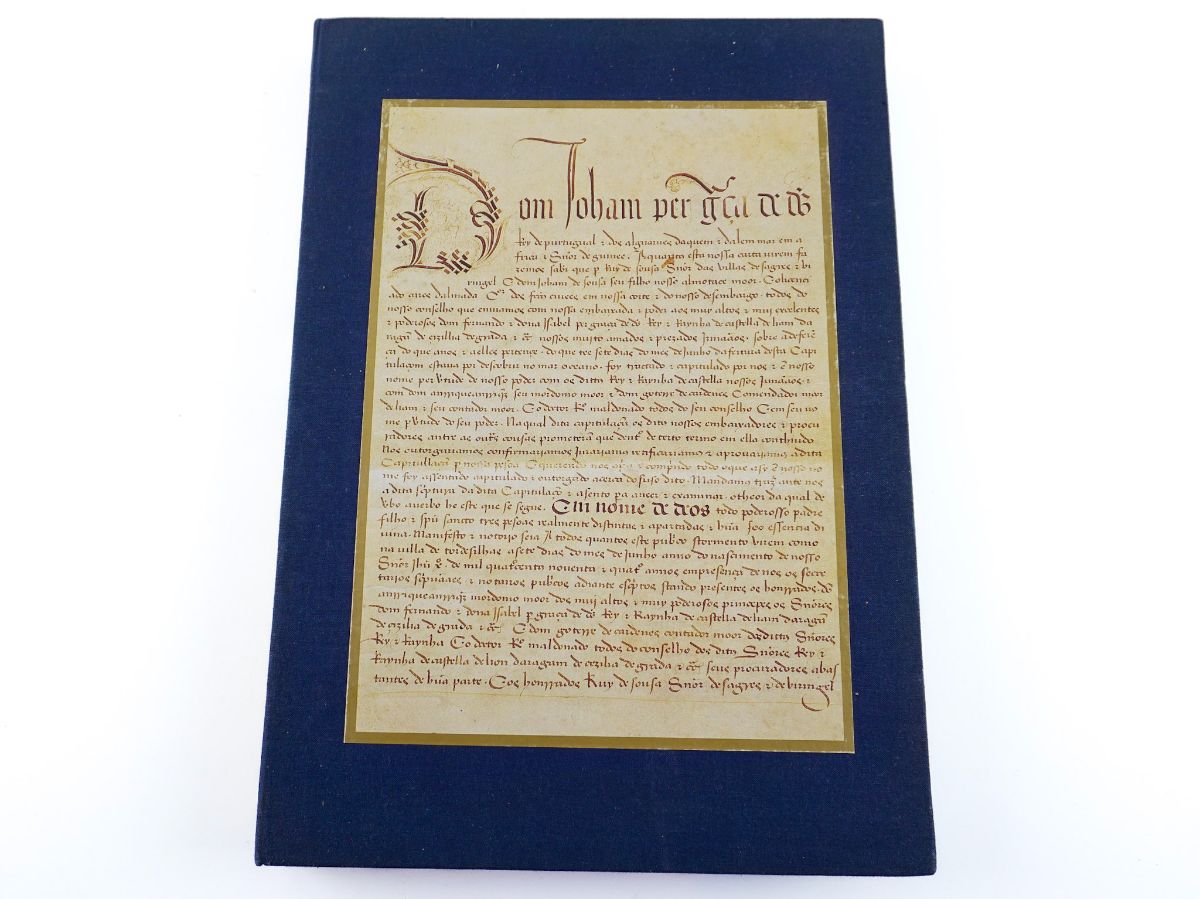 Dom Joham per gr̃ça de ds̃
Rey de purtugual ⁊ dos algarues daquem ⁊ dalem mar em a
frica ⁊ Sñor de guinee. A quantos esta nossa carta virem fa
zemos sabr̃ que ꝑ Ruy de sousa Sñor das villas de sagres ⁊ bi
ringel E dom Joham de sousa seu filho nosso almotace moor. E o licenci
ado aires dalmada Cor. dos feitos ciuees em nossa corte ⁊ do nosso desembargo. todos do
nosso conselho que enuiamos com nossa embaixada ⁊ poder aos muy altos ⁊ mui excelentes
⁊ poderosos dom fernando ⁊ dona Isabel per graça de ds̃ Rey ⁊ Raynha de castella de liam da
ragã de cizilia de grãda ⁊ cẽt. nossos muito amados ⁊ prezados Irmãaos. sobre a deferẽ
ça do que a nos ⁊ a elles pertençe. do que tee sete dias do mes de Junho da feitura desta Capi
tulaçom estaua por descobrir no mar oceano. foy trautado ⁊ capitulado por nos ⁊ ẽ nosso
nome per vertude de nosso poder com os ditos Rey ⁊ Raynha de castella nossos Irmãaos ⁊
com dom anrrique anrriqz̃ seu mordomo moor ⁊ dom goterre de cardenes Comendador moor
de liam ⁊ seu contador moor. E o doctor Ro. maldonado todos do seu conselho E em seu no
me ꝑ vertude do seu poder. Na qual dita capitulaçã os ditos nossos embaixadores ⁊ procu
radores antre as outras cousas prometeram que dentro de certo termo em ella conthiudo
Nos outorgariamos confirmariamos Jurariamos retificariamos ⁊ aprouariamos a dita
Capitullaçã ꝑ nossa pesoa E querendo nos asy ⁊ comprindo todo o que asy ẽ nosso no
me foy assentado capitulado ⁊ outorgado acerca do suso dito. Mandamos trazer ante nos
a dita scriptura da dita Capitulaçã ⁊ asento pa a veer ⁊ examinar. o theor da qual de
vbo a verbo he este que se segue. Em nome de deos todo poderosso padre
filho ⁊ spũ sancto tres pesoas realmente distintas ⁊ apartadas ⁊ hũa soo essencia di
uina. Manifesto ⁊ notorio seia A todos quantos este pubrico stormento virem como
na villa de tordesilhas a sete dias do mes de Junho anno do nascimento de nosso
Sñor Jhũ xo. de mil quatrocentos nouenta ⁊ quatro annos em presença de nos os secre
tarios scripuãaes ⁊ notarios pubricos adiante escriptos stando presentes os honrrados. dõ
anrrique anrriqz̃ mordomo moor dos mui altos ⁊ muy poderosos prinçepes os Sñores
dom fernando ⁊ dona Isabel ꝑ graça de ds̃ Rey ⁊ Raynha de castella de liam daragã
de çizilia de grãda ⁊ cẽt. E dom goterre de cardenes contador moor dos ditos Sñores
Rey ⁊ Raynha E o doctor Ro. maldonado todos do conselho dos ditos Sñores Rey ⁊
Raynha de castella de lion daragam de cezilia de grãda ⁊ cẽt. seus procuradores abas
tantes de hũa parte. E os honrrados Ruy de sousa Sñor de sagres ⁊ de biringel